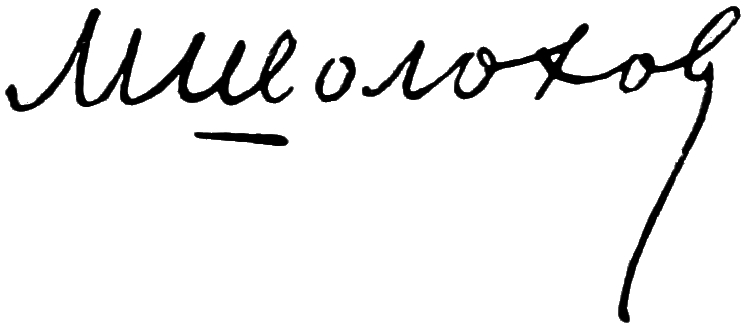 МШолохов